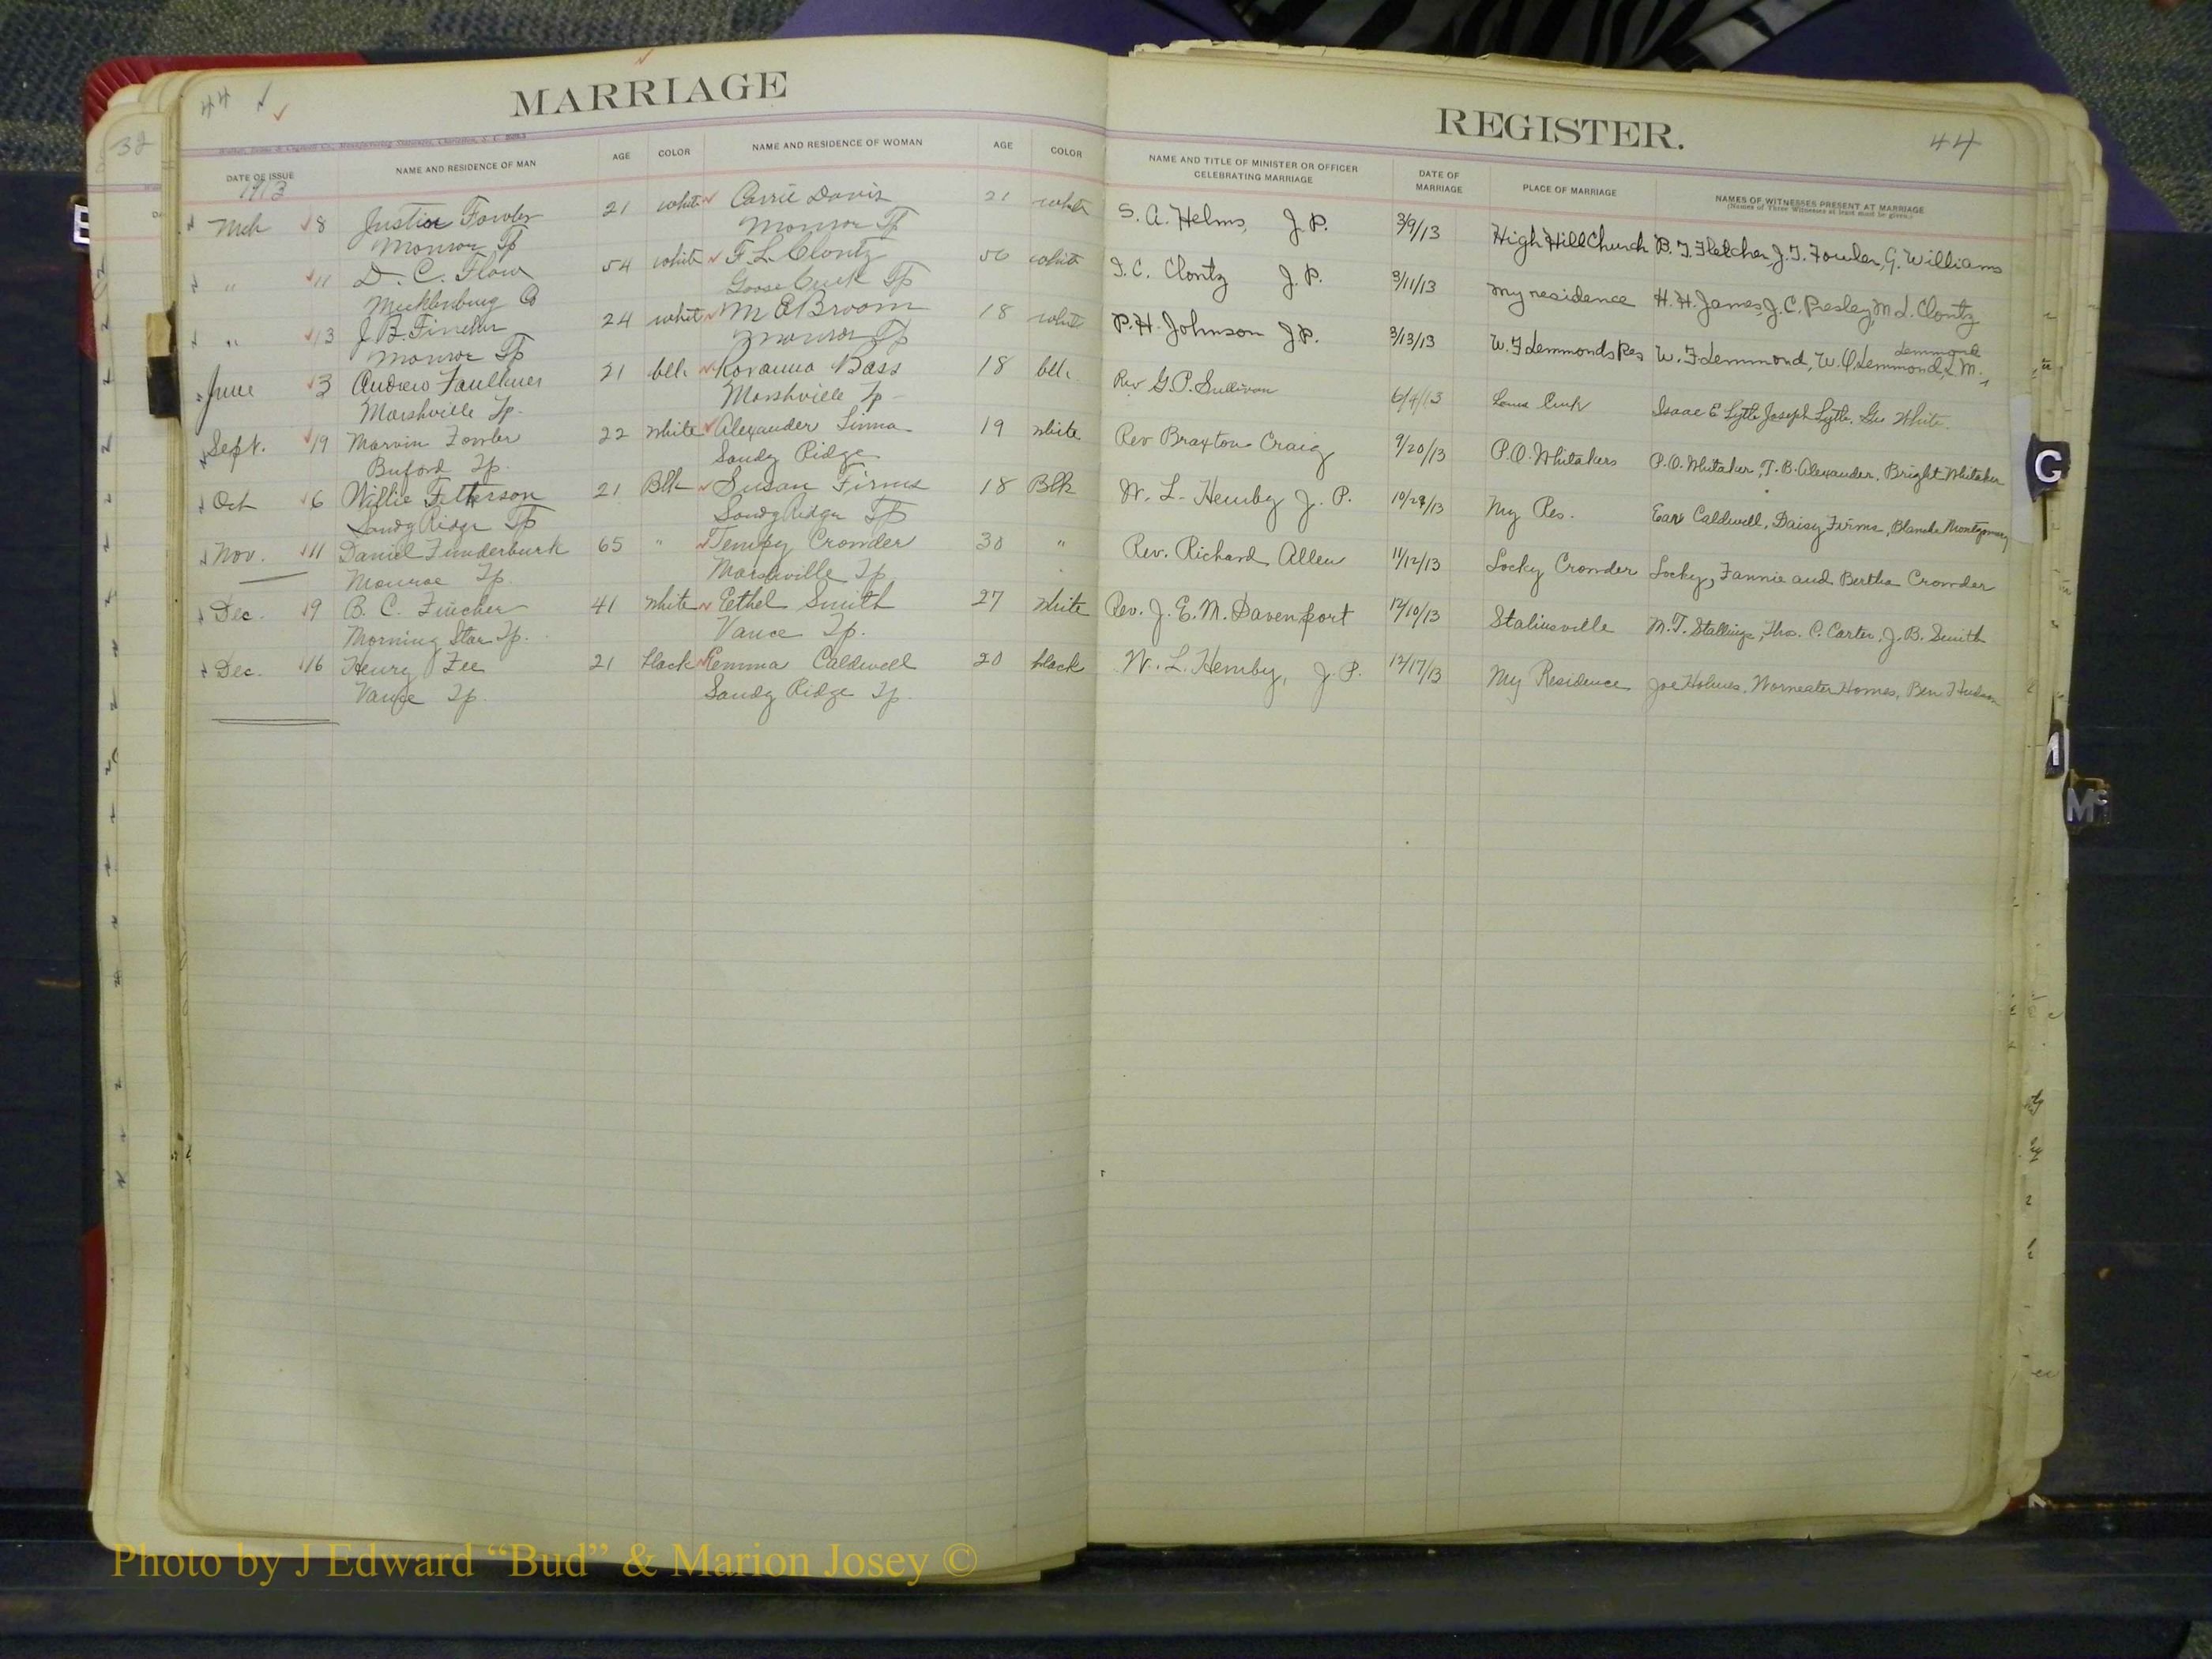 44
MARRIAGE
DATE OF ISSUE
NAME AND RESIDENCE OF MAN
AGE
COLOR
NAME AND RESIDENCE OF WOMAN
AGE
COLOR
1913
Mch 8 Justin Fowler 21 white Carrie Davis 21 white
Monroe Tp Monroe Tp
" 11 D. C. Flow 54 white F. L. Clontz 50 white
Mecklenburg Co Goose Creek Tp
" 13 J. B. Fincher 24 white M E Broom 18 white
Monroe Tp Monroe Tp
June 3 Andrew Faulkner 21 blk Rovanna Bass 18 blk
Marshville Tp. Marshville Tp
Sept. 19 Marvin Fowler 22 white Alexander 19 white
Buford Tp. Sandy Ridge
Oct 6 Willie Fetterson 21 Blk Susan Firms 18 Blk
Sandy Ridge Tp Sandy Ridge Tp
Nov. 11 Daniel Funderburk 65 " Tempy Crowder 30 "
Monroe Tp. Marshville Tp.
Dec. 9 B. C. Fincher 41 white Eethel Smith 27 white
Morning Star Tp. Vance Tp.
Dec. 16 Henry Fee 21 black Eemma Caldwell 20 black
Vance Tp. Sandy Ridge Tp.
REGISTER.
44
NAME AND TITLE OF MINISTER OR OFFICER
CELEBRATING MARRIAGE
DATE OF
MARRIAGE
PLACE OF MARRIAGE
NAMES OF WITNESSES PRESENT AT MARRIAGE
(Names of Three Witnesses at least must be given.)
S. A. Helms, J. P. 3/9/13 High Hill Church B. T. Fletcher, J. T. Fowler, G. Williams
I. C. Clontz J. P. 3/11/13 My residence H. H. James, J. C. Presley, M L. Clontz
P. H. Johnson J P. 3/13/13 W. F Lemmonds Res W. F Lemmond, W. O. Lemmond, L M. Lemmond
Rev G. P. Sullivan 6/4/13 Isaac E Lytle, Joseph Lytle, Geo White.
Rev Braxton Craig 9/20/13 P. O. Whitakers P. O. Whitaker, T. B. Alexander, Bright Whitaker
W. L. Hemby J. P. 10/ /13 My Res. Earl Caldwell, Daisy Firms, Blanche Montgomery
Rev. Richard Allen 11/12/13 Locky Crowder Locky, Fannie and Bertha Crowder
Rev. J. E. M. Davenport 12/10/13 Stalinsville M. T. Stallings, Tho. C. Carter, J. B. Smith
W. L. Hemby, J. P. 12/17/13 My Residence Joe Holmes, Homes, Ben Hudson
32
G
M
Mc
Photo by J Edward “Bud” & Marion Josey ©